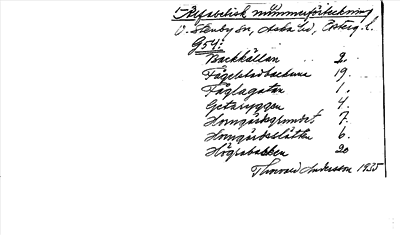 Alfabetisk nummerförteckning
V. Stenby sn, Aska hd, Österg. l.
G54:
Backkällan 2.
Fågelstadbackarna 19.
Fåglagatan 1.
Getaryggen 4.
Horngärdsgrundet 7.
Horngärdsslätten 6.
Högrabacken 20
Thorvald Andersson 1935